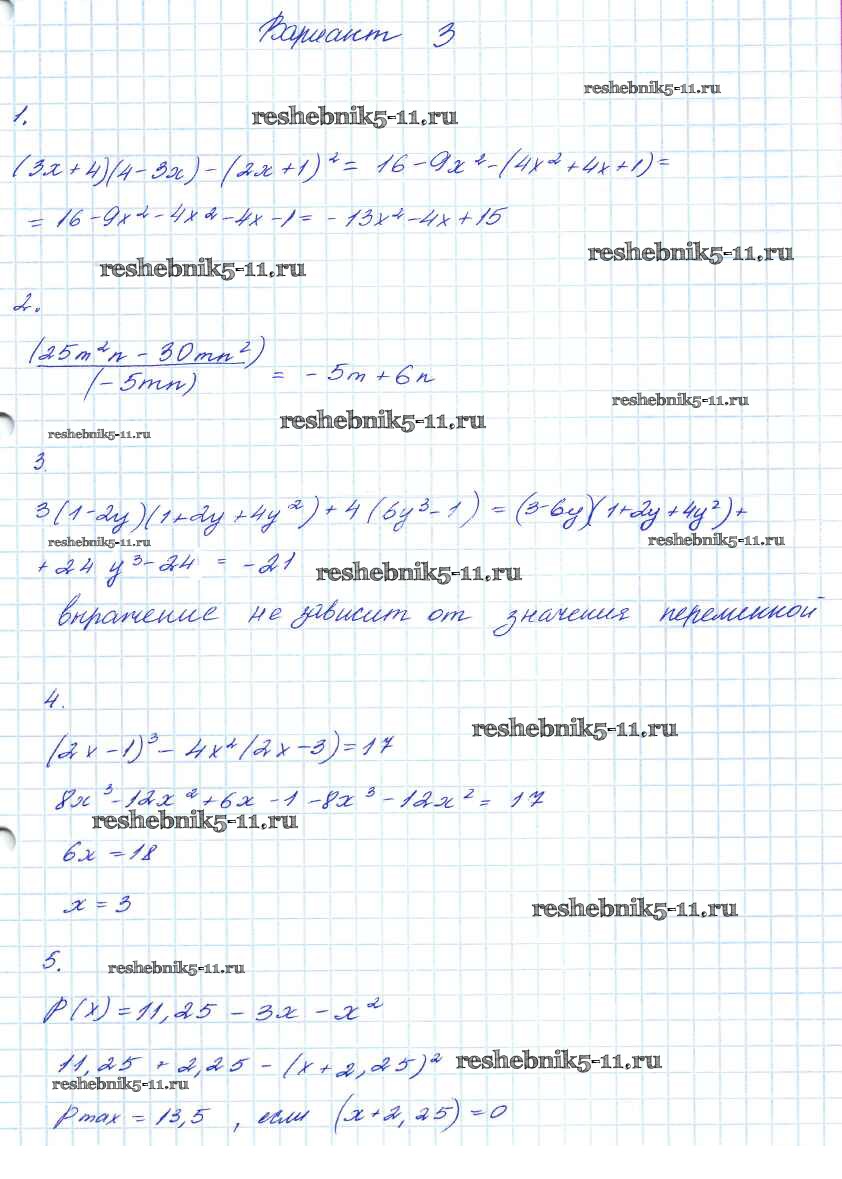 Вариант 3
reshebnik5-11.ru
1.
reshebnik5-11.ru
(3x+4)(4-3x)-(2x+1)²= 16-9x²-(4x²+4x+1)=
=16-9x²-4x²-4x-1= -13x²-4x+15
reshebnik5-11.ru
reshebnik5-11.ru
2.
(25m²n - 30mn²)
(-5mn)
= -5m+6n
reshebnik5-11.ru
reshebnik5-11.ru
reshebnik5-11.ru
3.
3(1-2y)(1+2y+4y²)+4(6y³-1) = (3-6y)(1+2y+4y²)+
reshebnik5-11.ru
reshebnik5-11.ru
+24 y³-24 = -21
reshebnik5-11.ru
выражение не зависит от значения переменной
4.
reshebnik5-11.ru
(2x-1)³-4x²(2x-3)=17
8x³-12x²+6x-1-8x³-12x²= 17
reshebnik5-11.ru
6x=18
x=3
reshebnik5-11.ru
5.
reshebnik5-11.ru
P(x)=11,25-3x-x²
11,25+2,25-(x+2,25)²
reshebnik5-11.ru
reshebnik5-11.ru
Pmax=13,5, если (x+2,25)=0